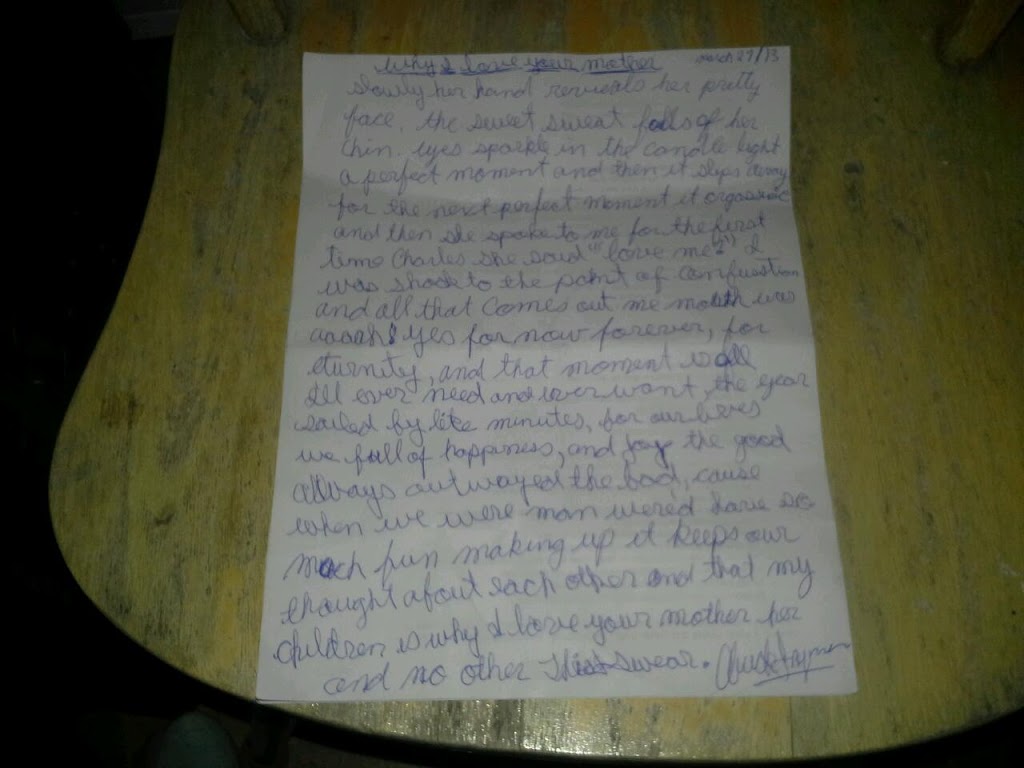 Why I love your mother march 27/13
slowly her hand reveals her pretty
face, the sweet sweat falls of her
chin. eyes sparkle in the candle light
a perfect moment and then it slips away
for the next perfect moment it orgasmic
and then she spoke to me for the first
time Charles she said "love me?" I
was shock to the point of confusstion
and all that comes out me mouth was
aaaah yes for now forever, for
eturnity, and that moment is all
Ill ever need and ever want, the year
sailed by like minutes, for our lives
we full of happiness, and joy the good
always outwayed the bad, cause
when we were mad wered have so
much fun making up it keeps our
thought about each other and that my
children is why I love your mother her
and no other I swear.